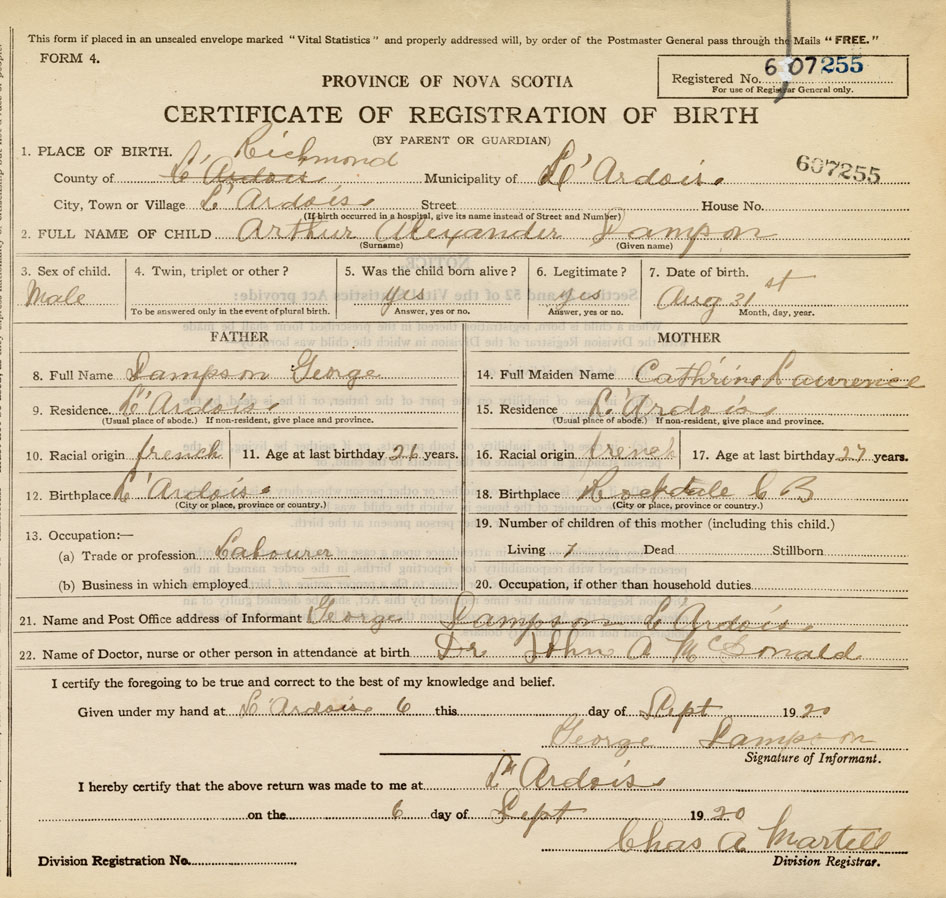 This form if placed in an unsealed envelope marked "Vital Statistics" and properly addressed will, by order of the Postmaster General pass through the Mails "FREE."
FORM 4.
PROVINCE OF NOVA SCOTIA
Registered No. 607255
For use of Registrar General only.
CERTIFICATE OF REGISTRATION OF BIRTH
(BY PARENT OR GUARDIAN)
1. PLACE OF BIRTH.
Richmond
County of L'Ardois Municipality of L'Ardois
607255
City, Town or Village L'Ardois Street House No.
(If birth occurred in a hospital, give its name instead of Street and Number)
2. FULL NAME OF CHILD Arthur Alexander Sampson
(Surname) (Given name)
3. Sex of child. 4. Twin, triplet or other? 5. Was the child born alive? 6. Legitimate? 7. Date of birth.
Male yes yes Aug 31st
To be answered only in the event of plural birth. Answer, yes or no. Answer, yes or no. Month, day, year.
FATHER MOTHER
8. Full Name Sampson George 14. Full Maiden Name Cathrine Lawrence
9. Residence. L'Ardois 15. Residence L'Ardois
(Usual place of abode.) If non-resident, give place and province. (Usual place of abode.) If non-resident, give place and province.
10. Racial origin french 11. Age at last birthday 26 years. 16. Racial origin french 17. Age at last birthday 27 years.
12. Birthplace L'Ardois 18. Birthplace Rockdale C B
(City or place, province or country.) (City or place, province or country.)
13. Occupation:— 19. Number of children of this mother (including this child.)
(a) Trade or profession Labourer Living 1 Dead Stillborn
(b) Business in which employed 20. Occupation, if other than household duties
21. Name and Post Office address of Informant George Sampson L'Ardois
22. Name of Doctor, nurse or other person in attendance at birth Dr John A McDonald
I certify the foregoing to be true and correct to the best of my knowledge and belief.
Given under my hand at L'Ardois 6 this day of Sept 1920
George Sampson
Signature of Informant.
I hereby certify that the above return was made to me at L'Ardois
on the 6 day of Sept 1920
Chas A Martell
Division Registration No. Division Registrar.